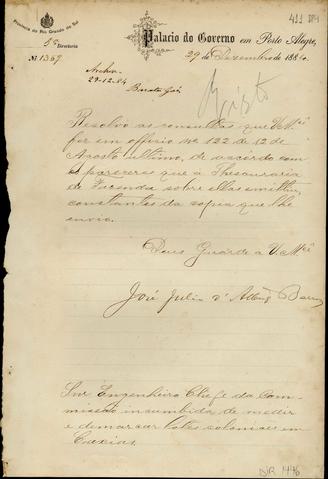 411
Provincia do Rio Grande do Sul
Palacio do Governo em Porto Alegre,
Directoria
29 de Dezembro de 1884.
Nº 1369
29-12-84
Resolvo as consultas que VMcê
fez em officio nº 122 de 12 de
Agosto ultimo, de accordo com
os pareceres que a Thesouraria
de Fazenda sobre ellas emittiu,
constantes da copia que lhe
envio.
Deus Guarde a V. Mcê
José Julio d'Albuq Barros
Snr. Engenheiro Chefe da Com-
missão incumbida de medir
e demarcar lotes coloniaes em
Caxias.